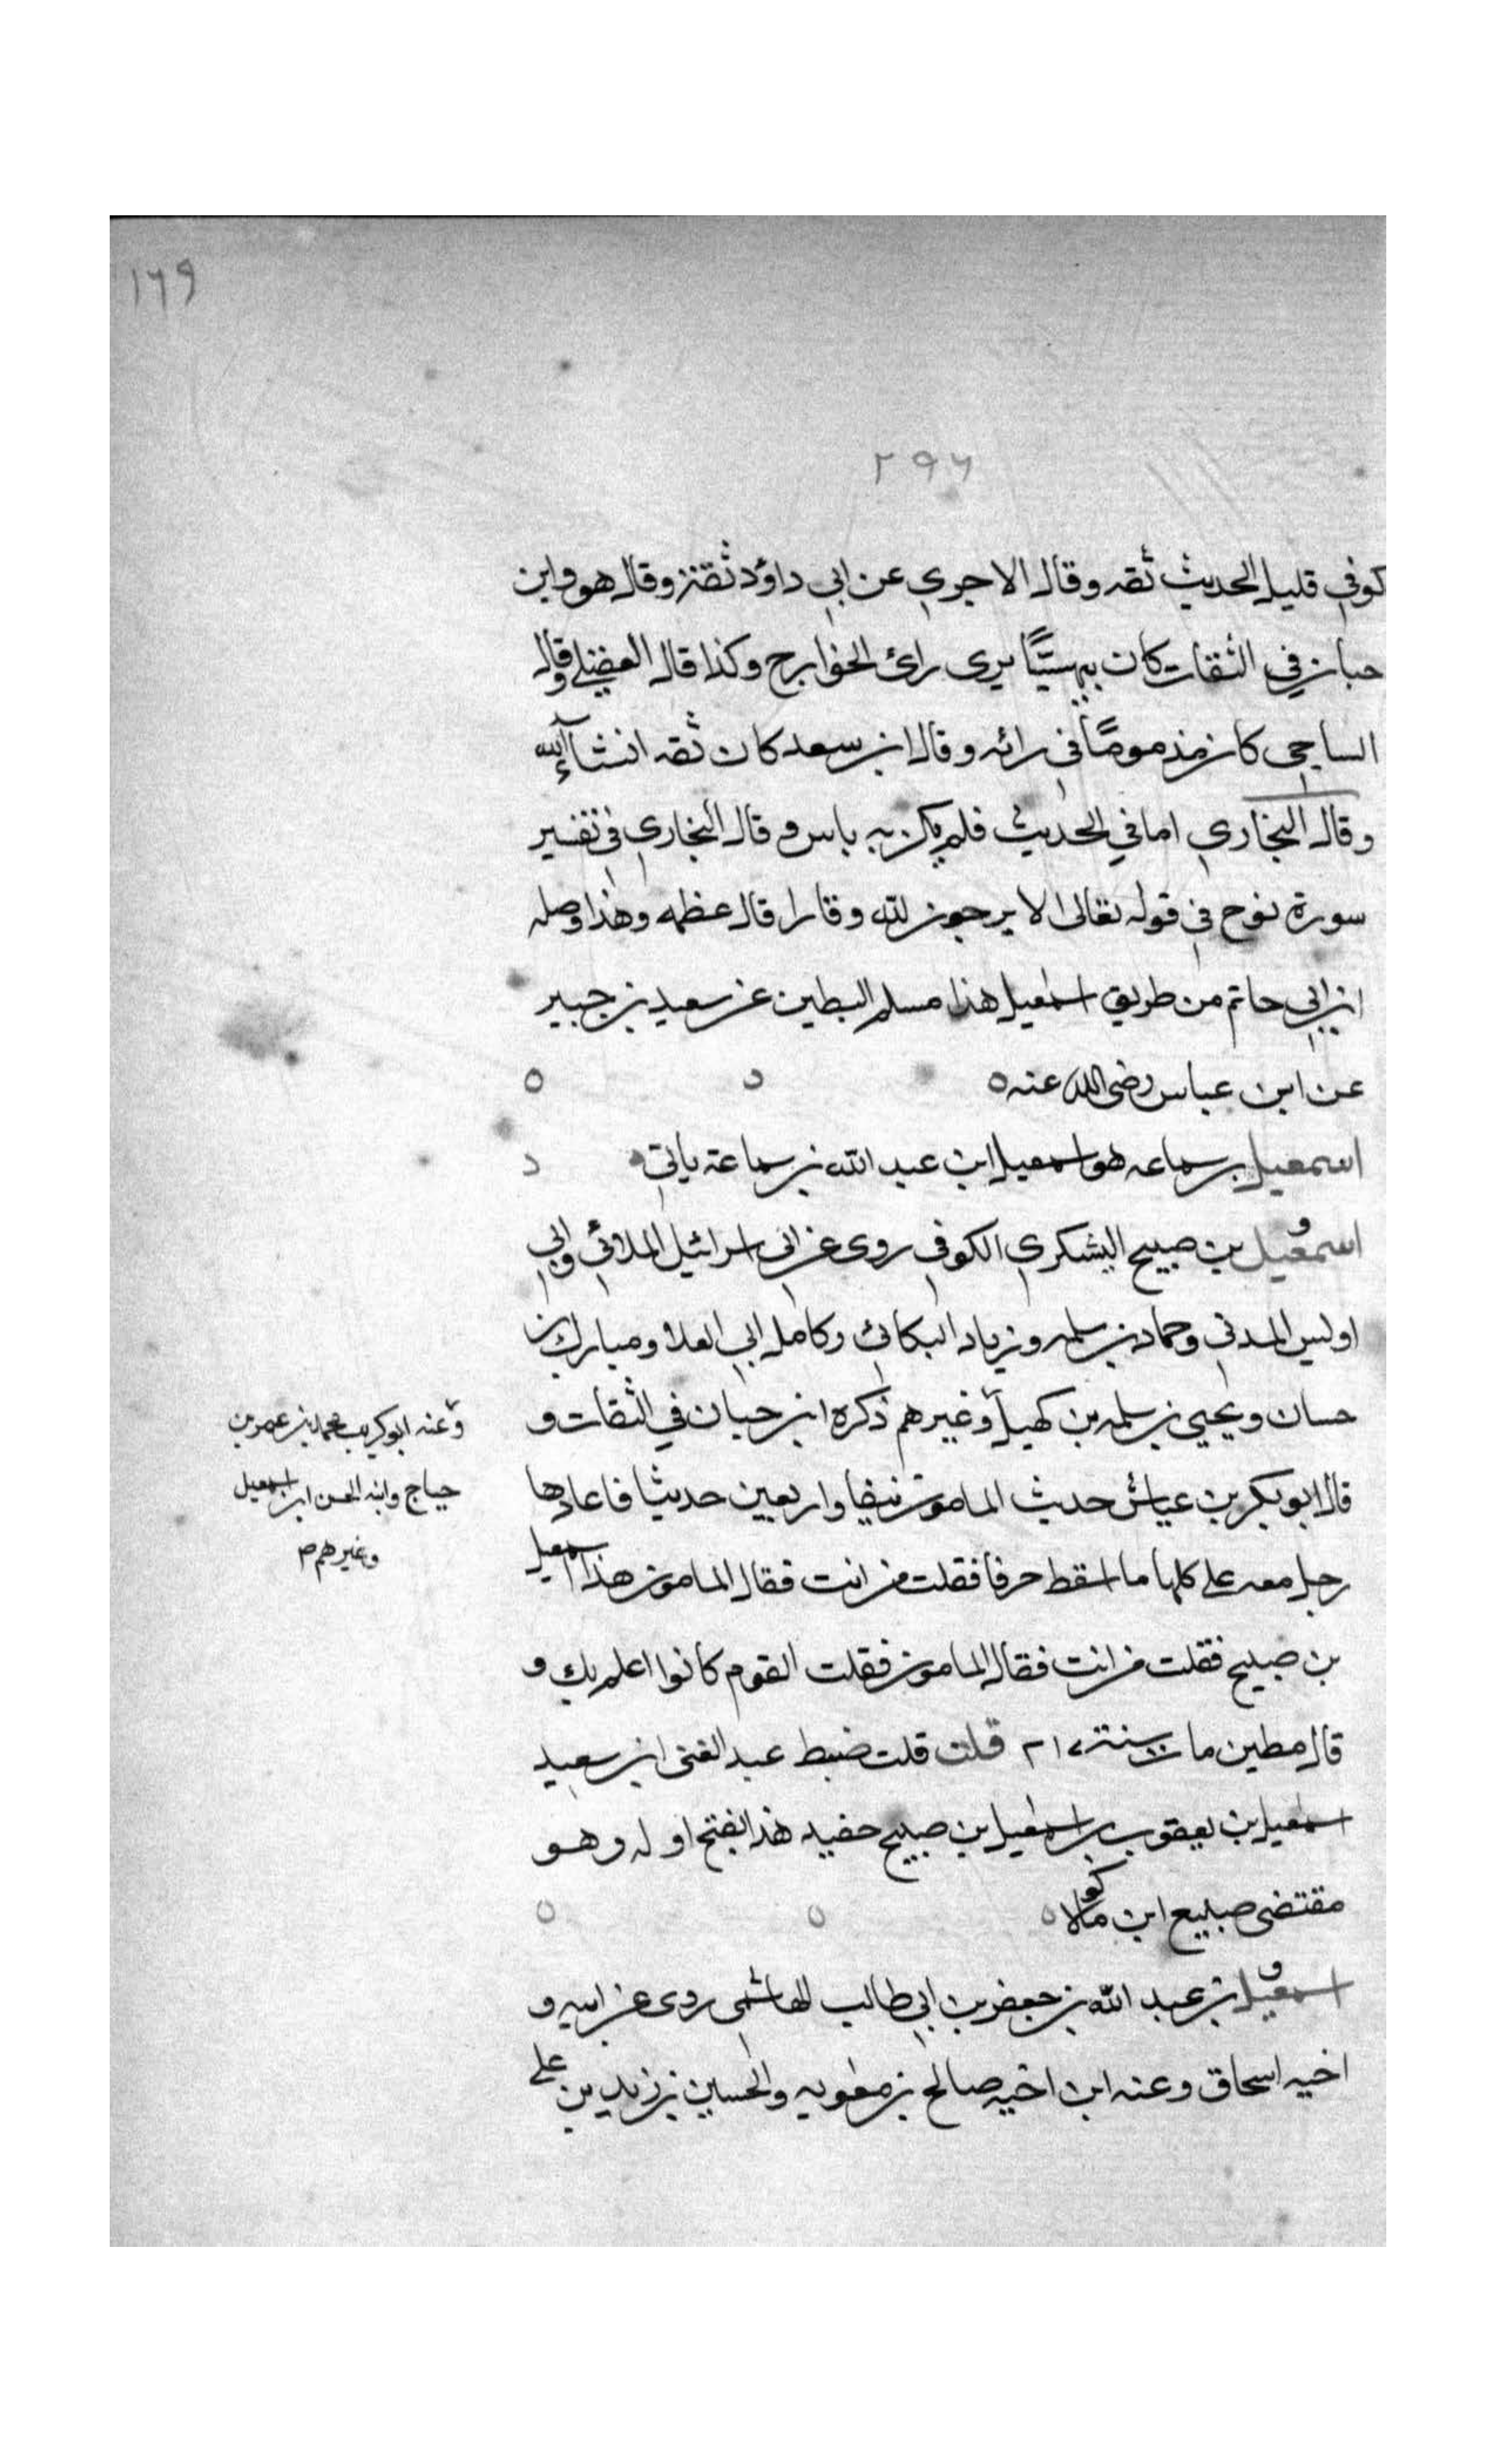 ١٦٩
٢٩٦
كوفي قليل الحديث ثقه وقال الاجري عن ابي داؤد ثقة وقال هو وابن
حبان في الثقات كان بيهسيًّا يرى رائ الخوارج وكذا قال العقيلي وقال
الساجي كان مذمومًا في رائه وقال ابن سعد كان ثقه انشاءالله
وقال البخاري اما في الحديث فلم يكن به باس وقال البخاري في تفسير
سورة نوح في قوله تعالى لا يرجون لله وقارا قال عظمه وهذا وصله
ابن ابي حاتم من طريق اسمعيل هذا مسلم البطين عن سعيد بن جبير
عن ابن عباس رضى الله عنه ٥
اسمعيل بن سماعه هو اسمعيل ابن عبد الله بن سماعة ياتي
اسمعيل بن صبيح اليشكري الكوفي روى عن ابي اسرائيل الملائي وابي
اويس المدني وحماد بن سلمه وزياد البكائي وكامل ابي العلا ومبارك بن
حسان ويحيى بن سلمه بن كهيل وغيرهم ذكره ابن حبان في الثقات و
وعنه ابو كريب ومحمد بن عمر بن
حياج وابنه الحسن ابن اسمعيل
وغيرهم م
قال ابو بكر بن عياش حديث المامون نيفا واربعين حديثا فاعادها
رجل معه على كلها ما اسقط حرفا فقلت من انت فقال المامون هذا اسمعيل
بن صبيح فقلت من انت فقال المامون فقلت القوم كانوا اعلم بك و
قال مطين مات سنة ٢١٧ قلت قلت ضبط عبد الغنى ابن سعيد
اسمعيل بن يعقوب بن اسمعيل بن صبيح حفيد هذا بفتح اوله وهو
مقتضى صبيع ابن ماكولا ٥
اسمعيل بن عبد الله بن جعفر بن ابي طالب الهاشمى روى عن ابيه و
اخيه اسحاق وعنه ابن اخيه صالح بن معويه والحسين بن زيد بن على